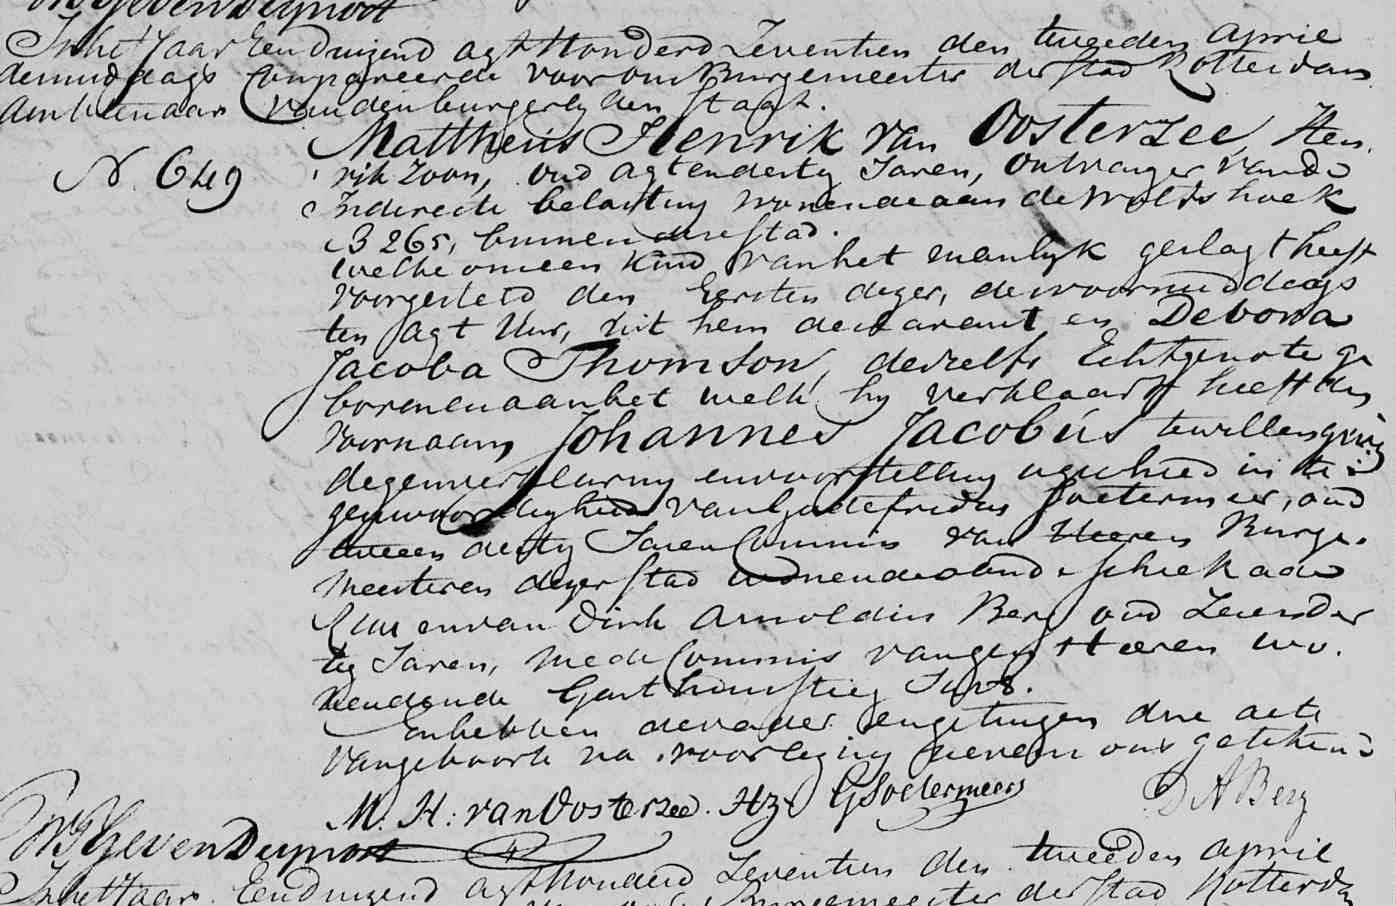 Gevers Deynoot
In het Jaar Een duizend agt honderd Zeventien den tweeden April
des middags Compareerde voor ons Burgemeester der Stad Rotterdam
Ambtenaar van den burgerlyken Staat.
Mattheus Henrik van Oosterzee, Hen
N. 649
rik Zoon, oud agtendertig Jaren, Ontvanger van de
Indirecte belasting wonende aan de Wolfshoek
B 265, binnen dese stad.
welke ons een kind van het manlyk geslagt heeft
voorgesteld den Eersten dezer, des voormiddags
ten agt Uur, uit hem declarant en Debora
Jacoba Thomson, deszelfs Echtgenote ge
boren en aan het welk hy verklaart heeft den
voornaam Johannes Jacobus te willen geven
deze verklaring en voorstelling geschied in te
genwoordigheid van Godefridus Soetermeer, oud
tweeen dertig Jaren Commis van Heeren Burge.
meesteren dezer stad wonende aan de Schiekade
en van Dirk Arnoldus Berg oud Zevender
tig Jaren, mede Commis van gem Heeren wo.
nende in de
en hebben de vader en getuigen dese acte
van geboorte na voorlezing nevens ons getekend
M. H. van Oosterzee. Hz. G Soetermeer D A Berg
Gevers Deynoot
In het Jaar Eenduizend agthonderd Zeventien den tweeden April
Burgemeester der Stad Rotterdam